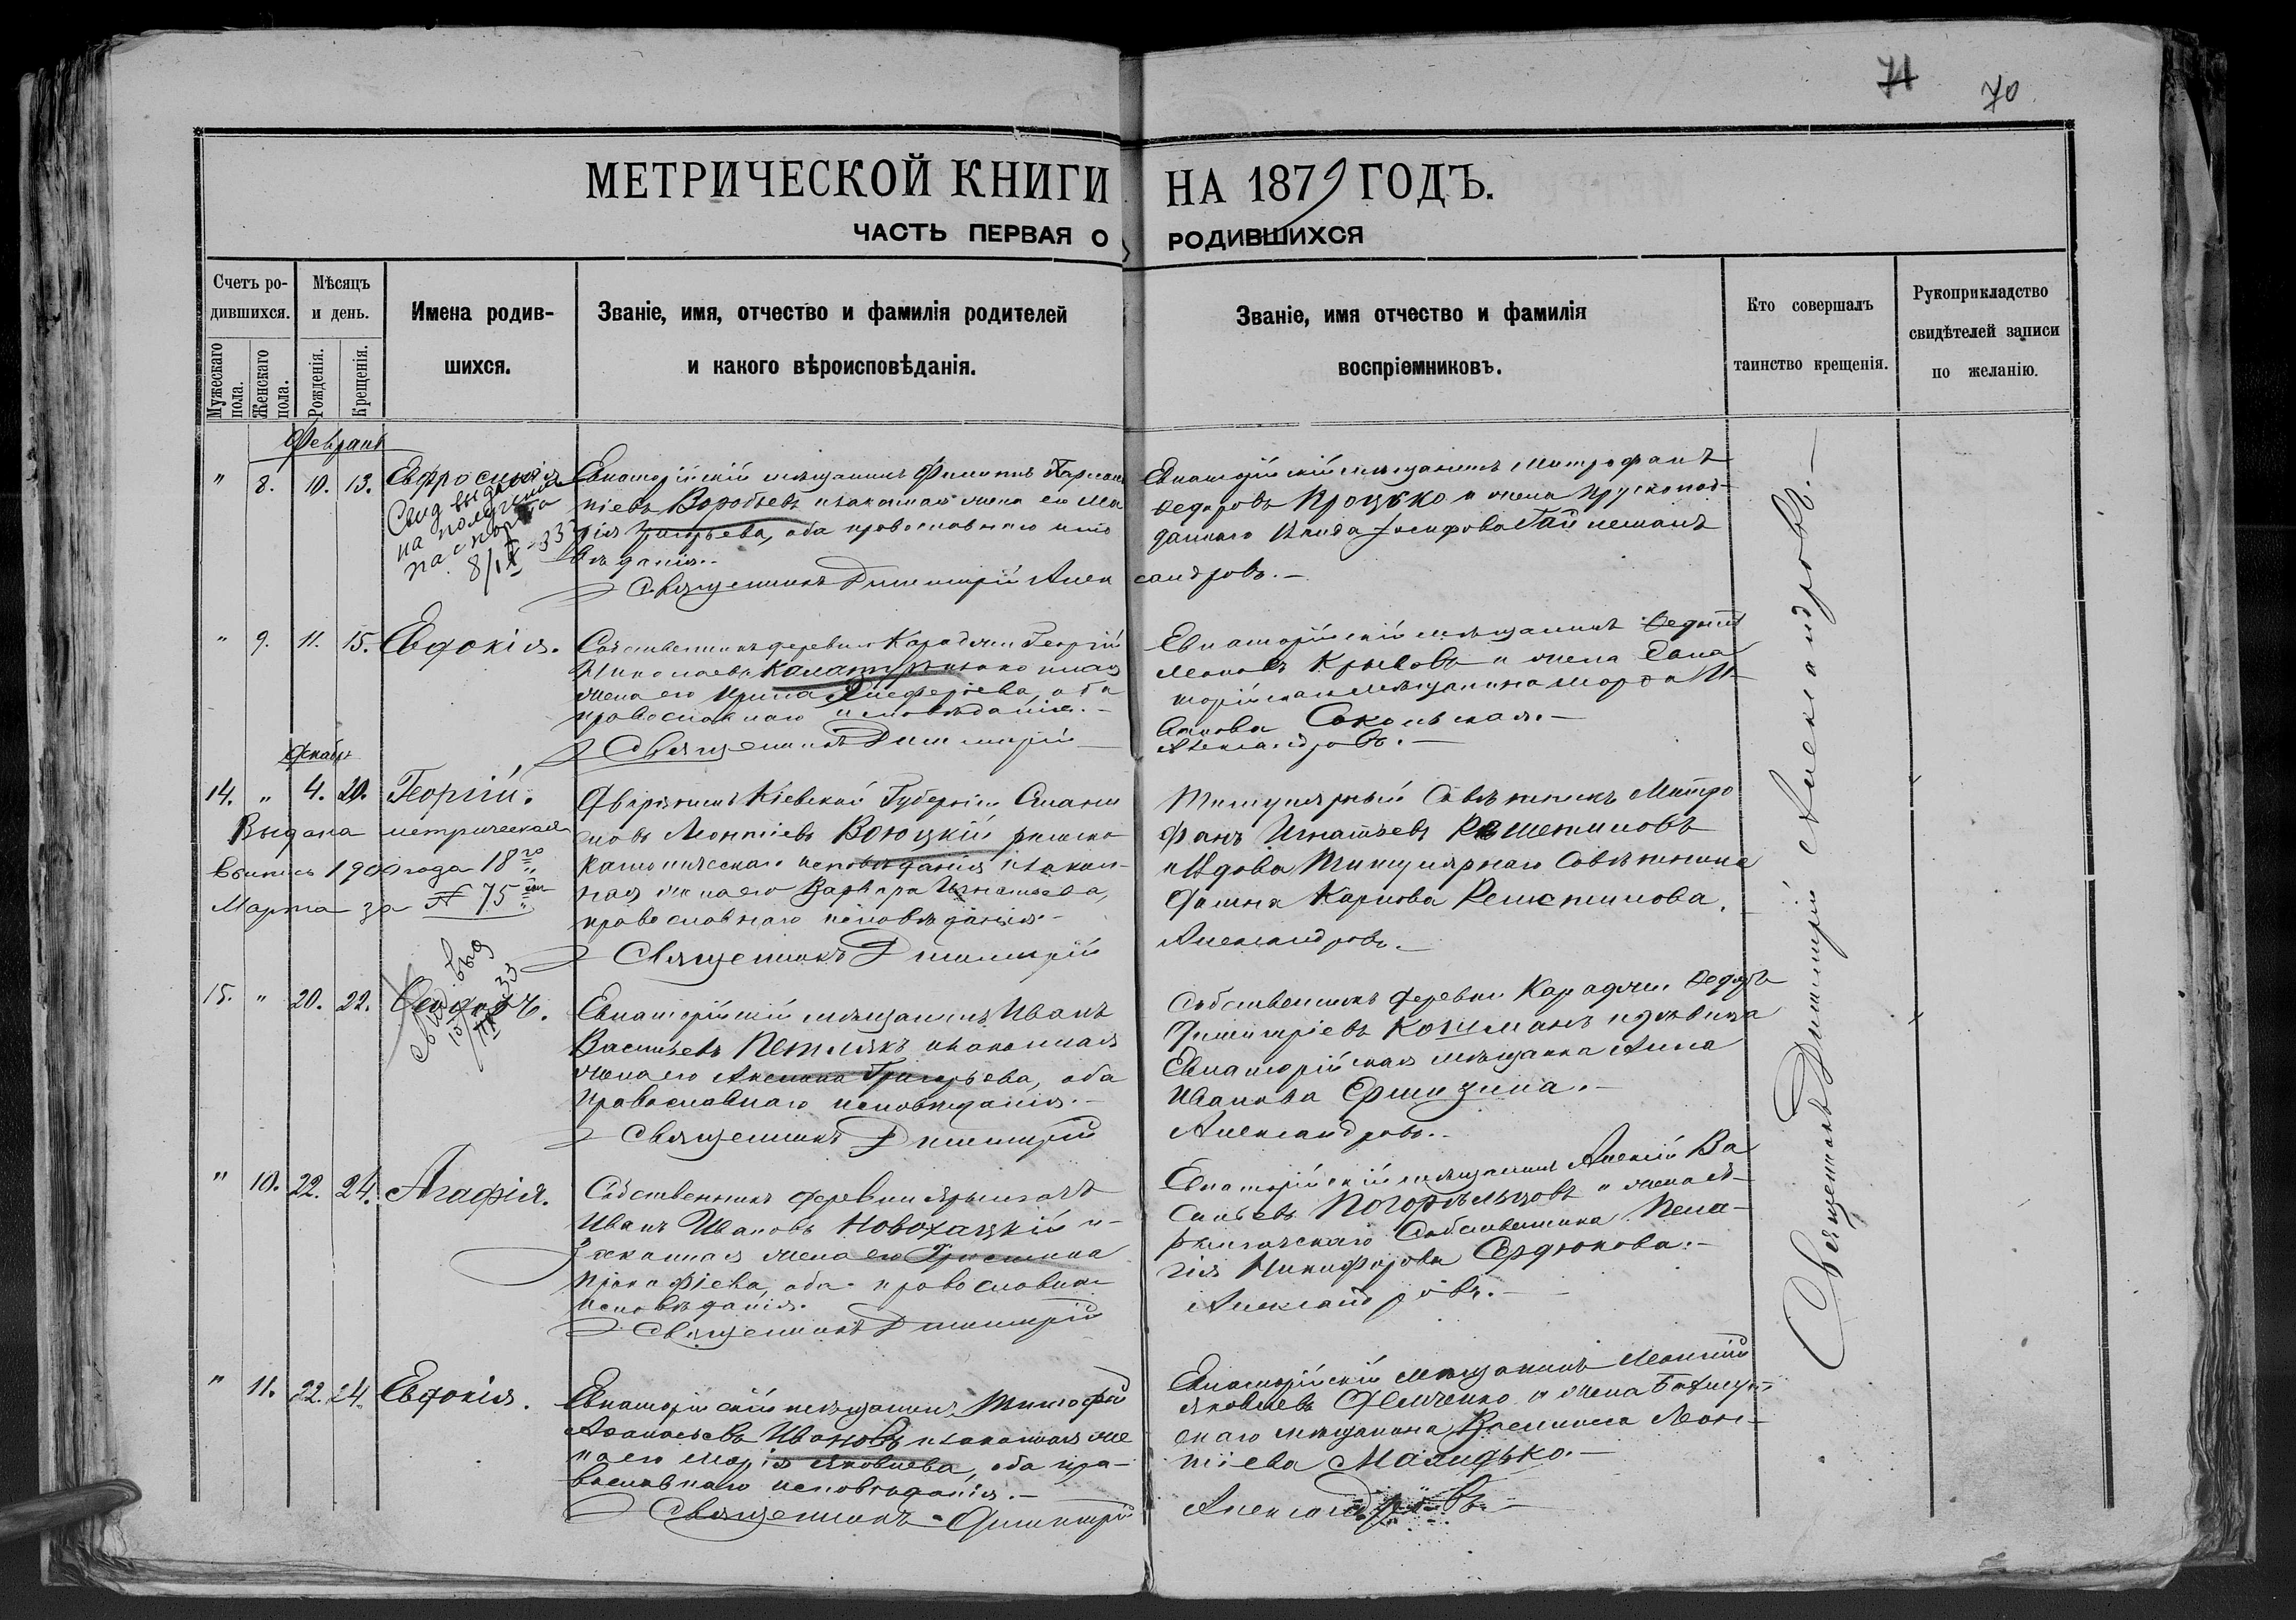 71 70
МЕТРИЧЕСКОЙ КНИГИ НА 1879 ГОДЪ.
ЧАСТЬ ПЕРВАЯ О РОДИВШИХСЯ
Счетъ ро-
дившихся.
Мужескаго
пола.
Женскаго
пола.
Мѣсяцъ
и день.
Рожденія.
Крещенія.
Имена родив-
шихся.
Званіе, имя, отчество и фамилія родителей
и какого вѣроисповѣданія.
Званіе, имя отчество и фамилія
воспріемниковъ.
Кто совершалъ
таинство крещенія.
Рукоприкладство
свидѣтелей записи
по желанію.
" 8. 10. 13. Евфросинія
Свид выдано
на получение
паспорта
8/IX-33
Евпаторійскій мѣщанинъ Филиппъ
Воробьевъ и законная жена его Ма
рія Григорьева, оба православнаго испо
вѣданія.-
Священникъ Димитрій Алек
сандровъ.-
Евпаторійскій мѣщанинъ Митрофанъ
Ѳедоровъ Процько и жена Прускопод-
даннаго
" 9. 11. 15. Евдокія.
Собственникъ деревни Караджи Георгій
Николаевъ и законная
жена его Ирина оба
православнаго исповѣданія.-
Священникъ Димитрій
Александровъ.-
Евпаторійскій мѣщанинъ
и жена Евпа
торійскаго мѣщанина Марѳа И-
ванова Сокольская.-
Декабрь
14. " 4. 20. Георгій.
Выдана метрическая
выпись 1900 года 18го
Марта за № 75
Дворянинъ Кіевской Губерніи
Леонтіевъ римско
католическаго исповѣданія и закон-
ная жена его Варвара Игнатьева,
православнаго исповѣданія.-
Священникъ Димитрій
Александровъ.-
Титулярный Совѣтникъ Митро
фанъ Игнатьевъ Решетиловъ
и вдова Титулярнаго Совѣтника
Карпова Решетилова.
15. " 20. 22. Ѳеодоръ.
Свид. выд
Евпаторійскій мѣщанинъ Иванъ
Васильевъ Петлякъ и законная
жена его Аксинія Григорьева, оба
православнаго исповѣданія.-
Священникъ Димитрій
Александровъ.-
Собственникъ деревни Караджи
Димитріевъ Кошманъ и дѣвица
Евпаторійская мѣщанка Анна
Иванова
" 10. 22. 24. Агафія.
Собственникъ деревни
Иванъ Ивановъ Новохацкій и-
законная жена его Христина
оба православнаго
исповѣданія.
Священникъ Димитрій
Александровъ.-
Евпаторійскій мѣщанинъ Алексій Ва
сильевъ Погорѣльцовъ и жена
Собственника Пела-
гія Никифорова Сердюкова.-
" 11. 22. 24. Евдокія.
Евпаторійскій мѣщанинъ Тимофей
Аѳанасьевъ Ивановъ и законная же
на его Марія Яковлева, оба пра-
вославнаго исповѣданія.-
Священникъ Димитрій
Александровъ-
Евпаторійскій мѣщанинъ Леонтій
Яковлевъ Демченко и жена
мѣщанина Василиса Леон-
тіева Малидько.-
Священникъ Димитрій Александровъ.-